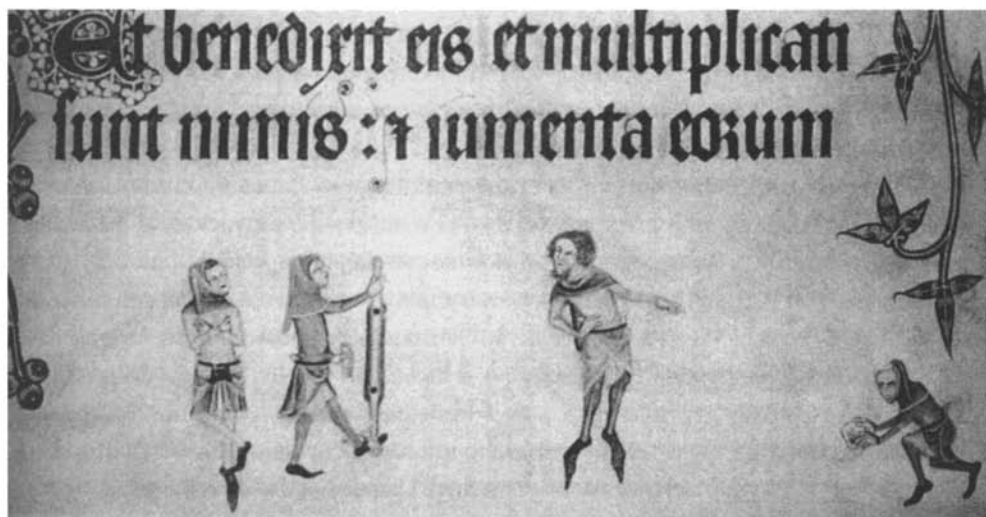 Et benedixit eis et multiplicati
sunt nimis : ⁊ iumenta eorum